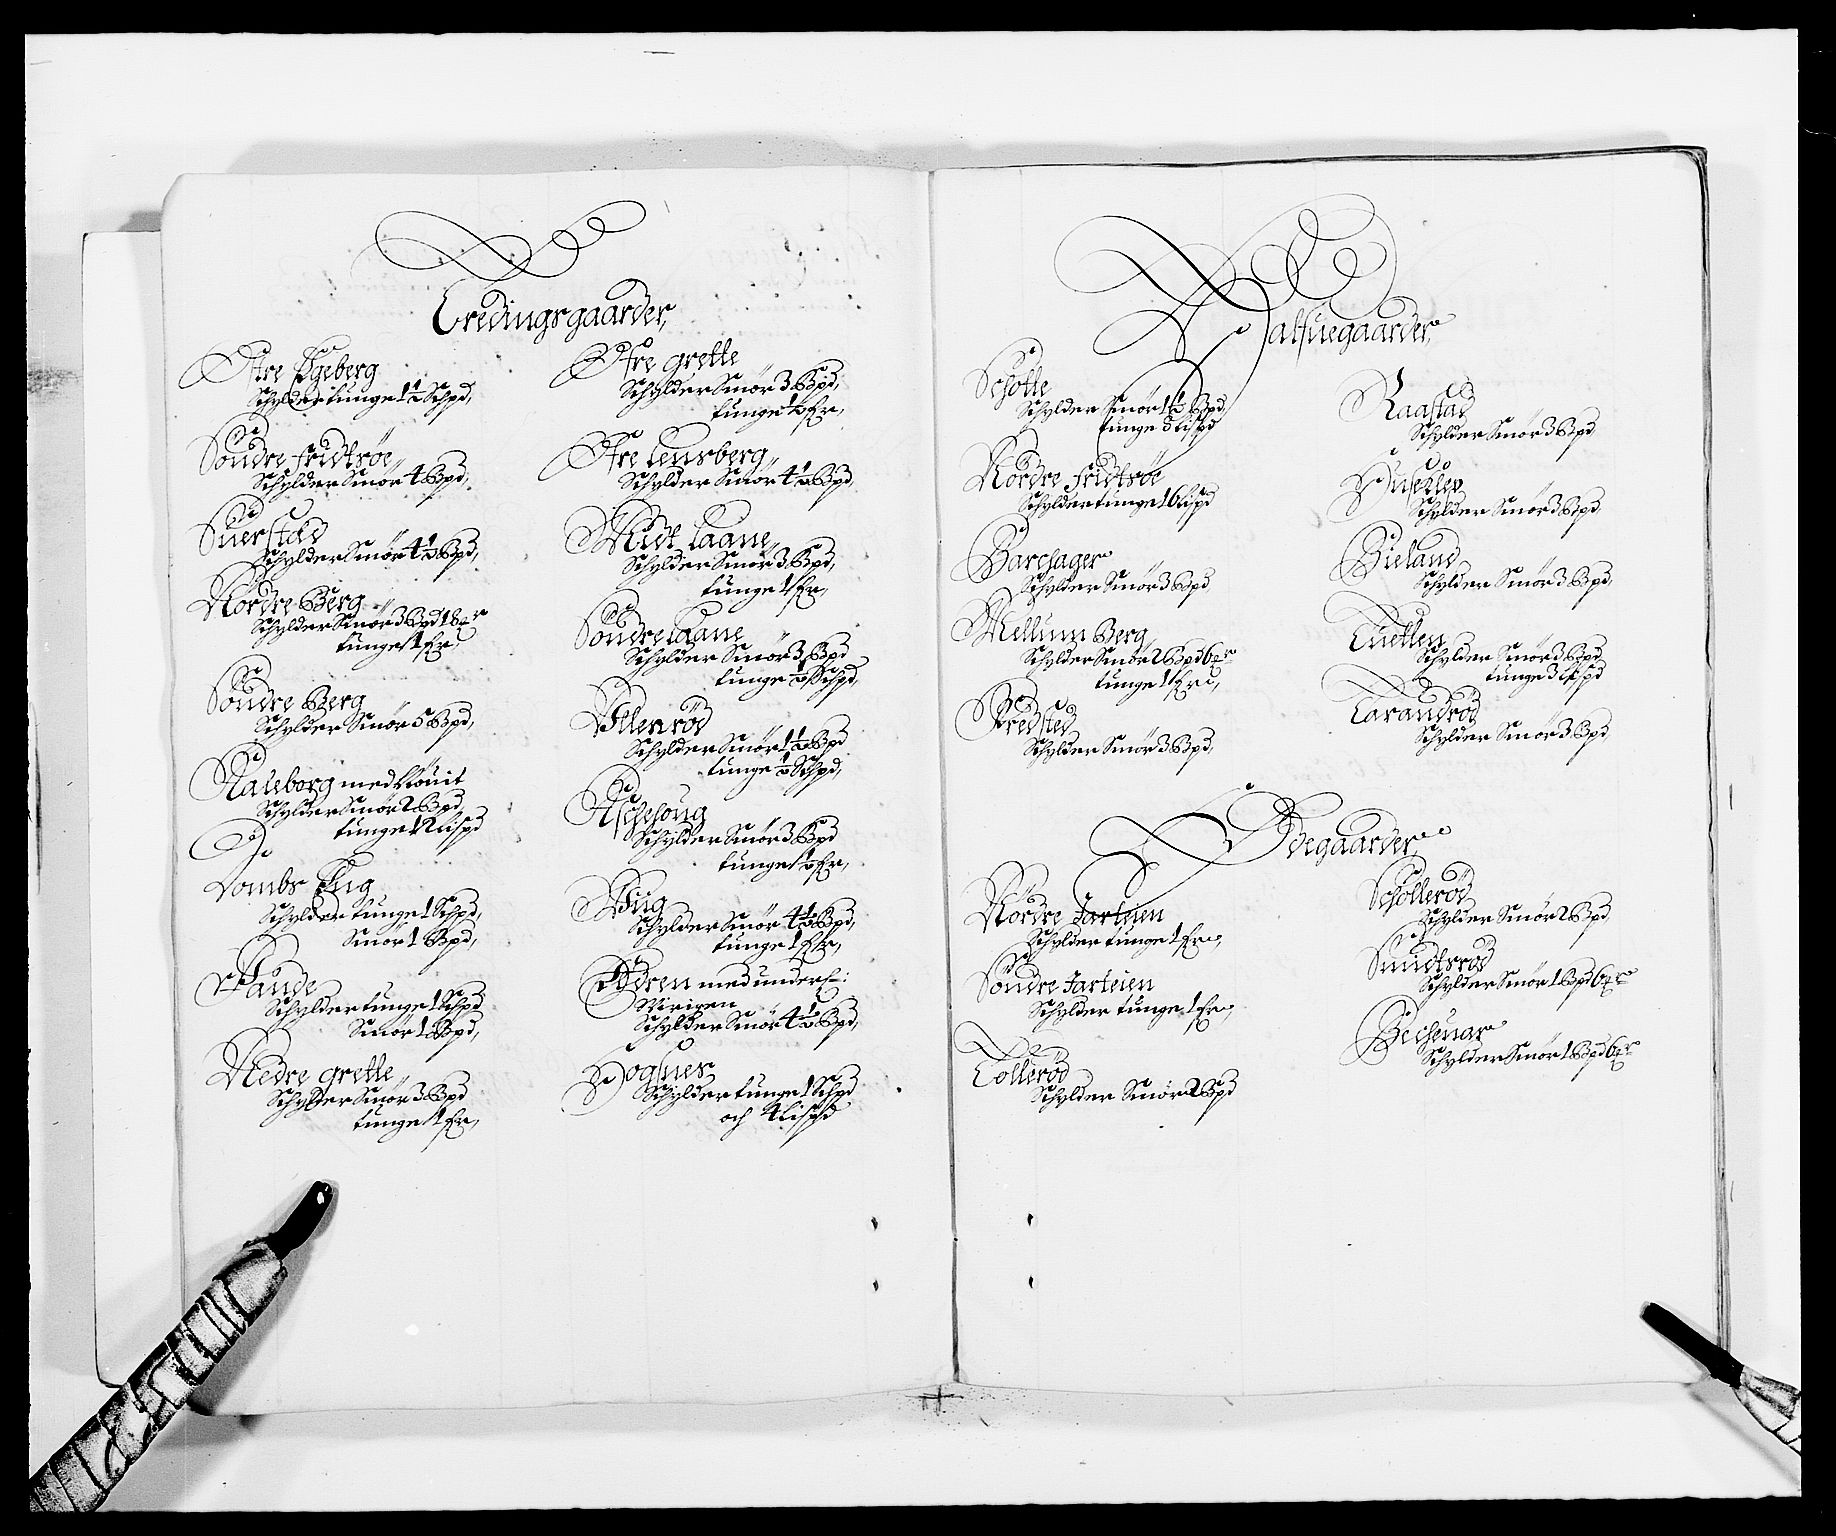 Tredingsgaarder,
Østre Egeberg
Schylder tunge 1½ Schpd,
Søndre fridtsøe,
Schylder Smör 4 Bpd,
Suerstad
Schylder Smör 4½ Bpd,
Nordre Berg
Schylder Smör 3 Bpd 18
tunge 1
Søndre Berg
Schylder Smör 5 Bpd,
Haleborg med
Schylder Smör 2 Bpd,
tunge 12 Lispd
Lombs Eng
Schylder tunge 1 Schpd,
Smör 1 Bpd,
Haude
Schylder tunge 1 Schpd
Smör 1 Bpd,
Nedre grette
Schylder Smör 3 Bpd
tunge 1
Østre grette
Schylder Smör 3 Bpd,
tunge
Østre lensberg,
Schylder Smör 4½ Bpd,
Midt laane,
Schylder Smör 3 Bpd,
tunge 1
Søndre laane
Schylder Smör 3 Bpd
tunge ½ Schpd,
Ellenrød
Schylder Smör 1½ Bpd
tunge ½ Schpd,
Aschehoug
Schylder Smör 3 Bpd
tunge
Wiig
Schylder Smör 4½ Bpd,
tunge 1
med under
Schylder Smör 4½ Bpd,
Hogsnes
Schylder tunge 1 Schpd
och 4 Lispd
Halfuegaarder,
Schotte
Schylder Smör 1½ Bpd,
tunge 5 Lispd
Nordre fridtsøe
Schylder tunge 16 Lispd
Barchager
Schylder Smör 3 Bpd,
Mellum Berg
Schylder Smör 2 Bpd 6
tunge 1
Fredsted
Schylder Smör 3 Bpd,
Raastad
Schylder Smör 3 Bpd,
Huseby
Schylder Smör 3 Bpd,
Bieland
Schylder Smör 3 Bpd,
Tuetten
Schylder Smör 3 Bpd
tunge 3 Lispd
Tarandrød
Schylder Smör 3 Bpd,
Ødegaarder,
Nordre Jarteien
Schylder tunge 1
Søndre Jarteien
Schylder tunge 1
Tollerød
Schylder Smör 2 Bpd
Schollerød
Schylder Smör 2 Bpd,
Smidtsrød
Schylder Smör 1 Bpd 6
Becheuar
Schylder Smör 1 Bpd 6